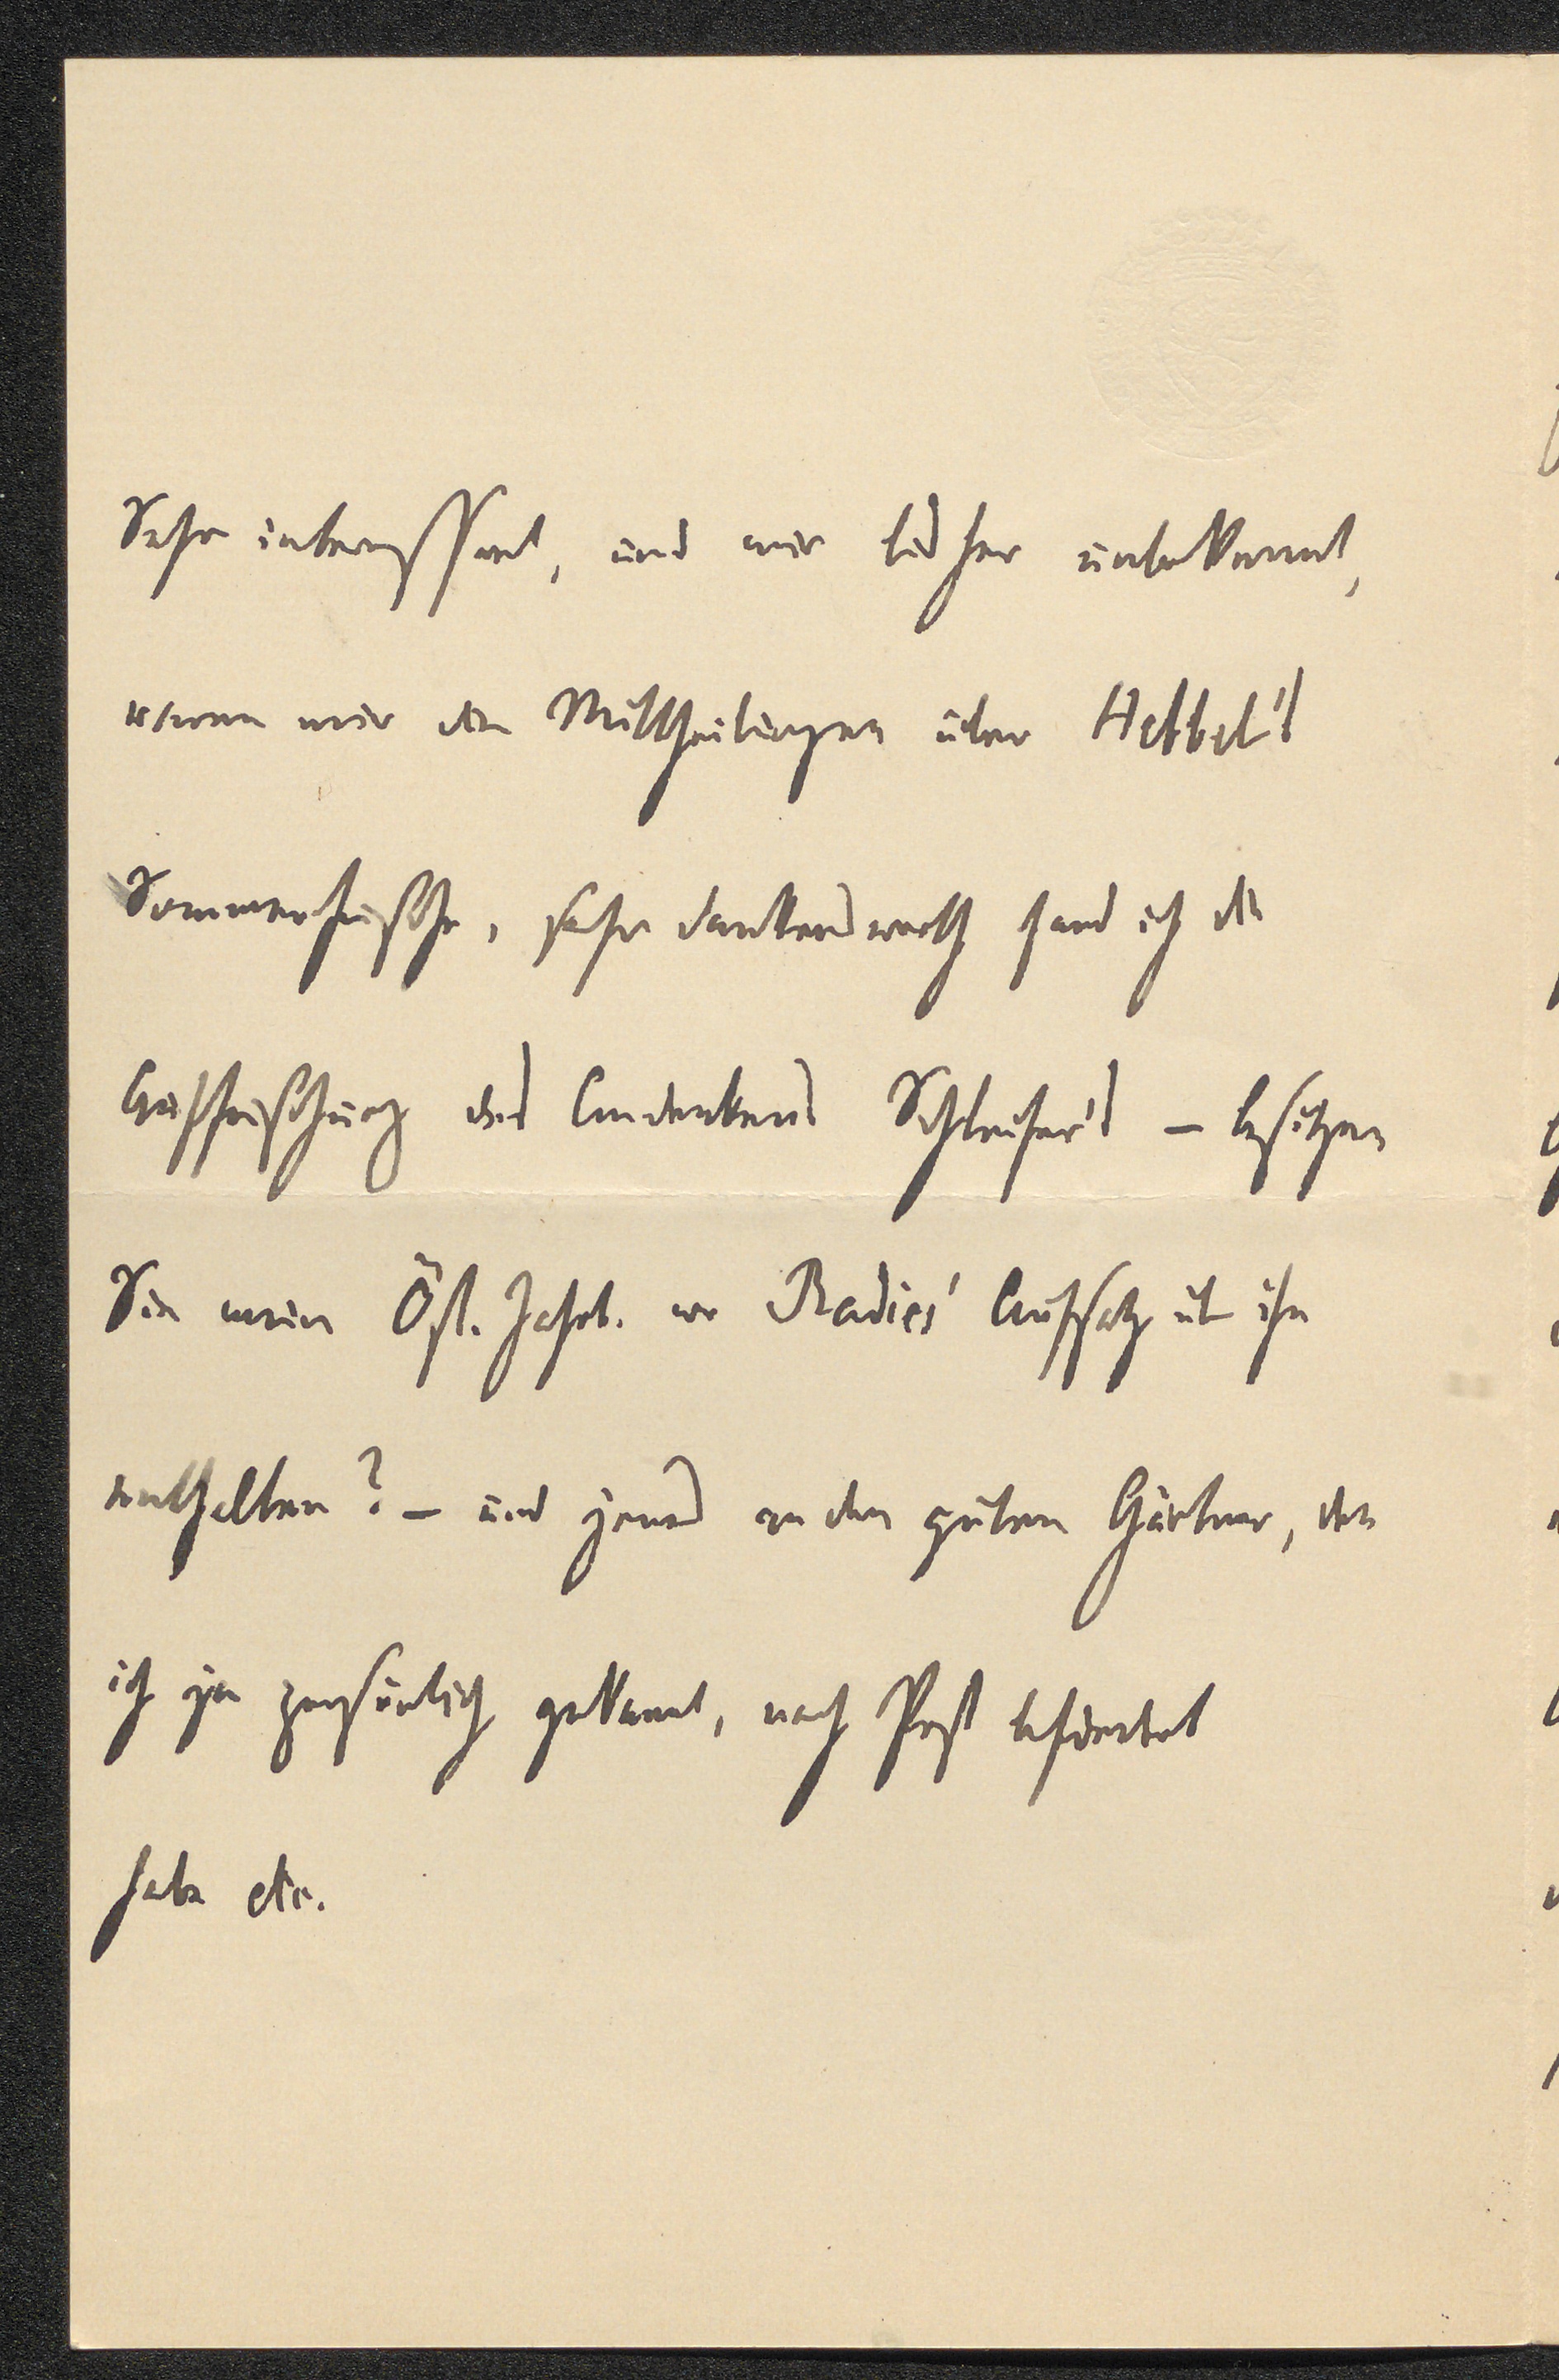 Sehr interessant, und mir bisher unbekannt,
waren mir die Mittheilungen über Hebbel's
Sommerfrische, sehr dankenswerth fand ich die
Auffrischung des Andenkens Schleifer's – besitzen
Sie mein Öst. Jahrb. wo Radics' Aufsatz üb ihn
enthalten? – und jenes an den guten Gärtner, den
ich ja persönlich gekannt, nach Pest befördert
habe etc.